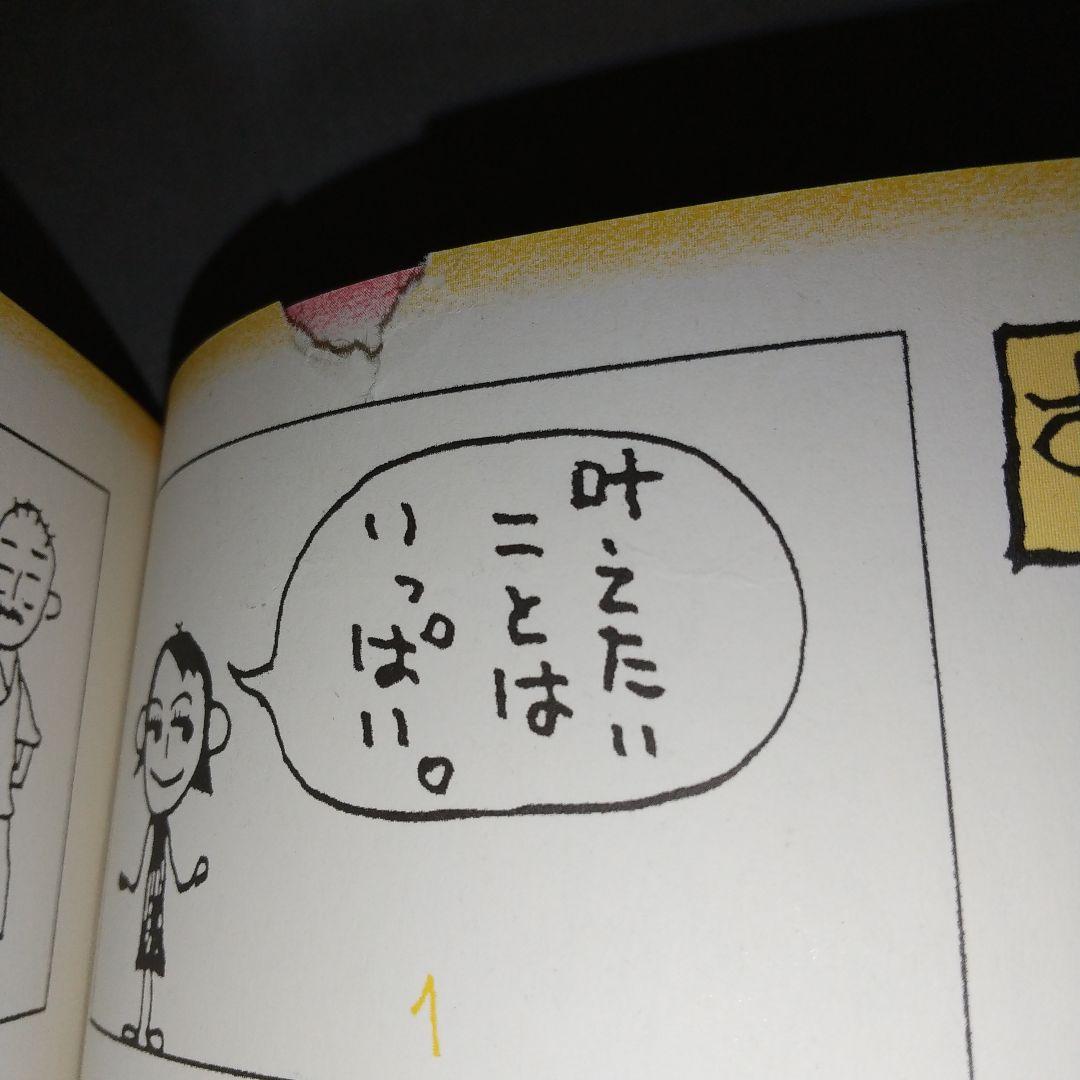 叶えたい
ことは
いっぱい。
1